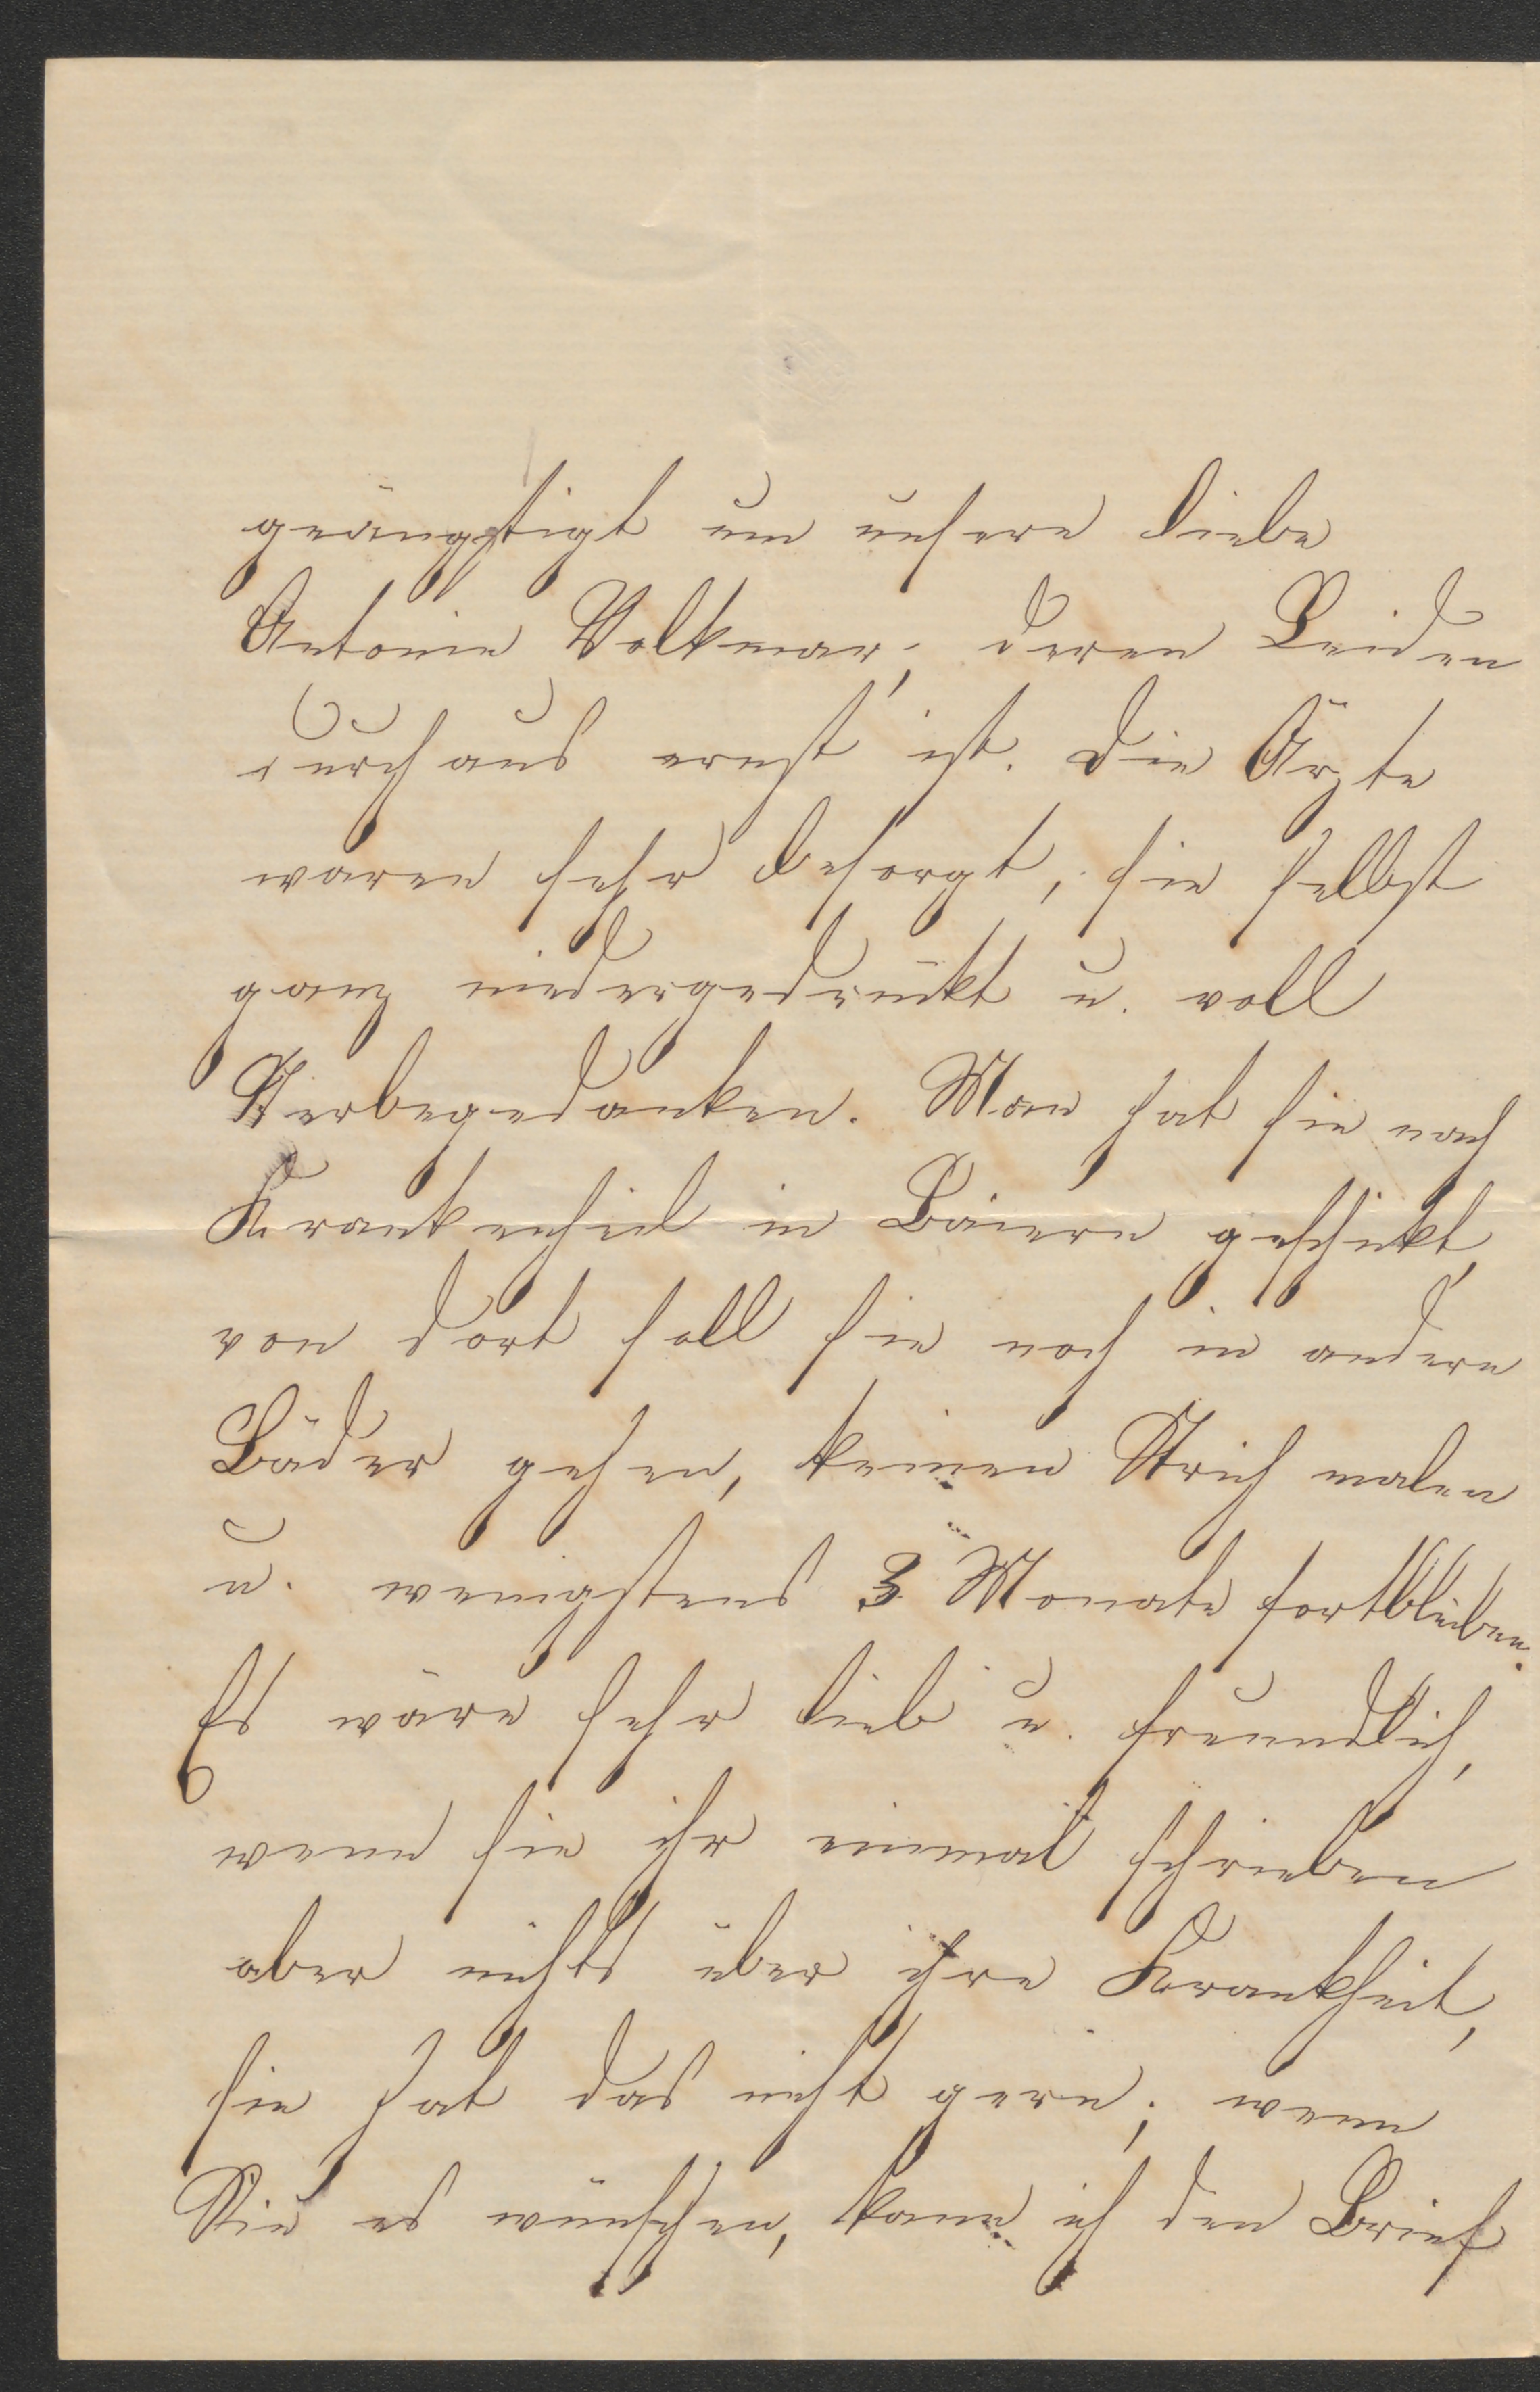 geängstigt um unsere liebe
Antonie Volkmar; deren Leiden
durchaus ernst ist. Die Ärzte
waren sehr besorgt, sie selbst
ganz niedergedrückt u. voll
Sterbegedanken. Man hat sie nach
Krankenheil in Baiern geschickt,
von dort soll sie noch in andere
Bäder gehen, keinen Strich malen
u. wenigstens 3 Monate fortbleiben.
Es wäre sehr lieb u. freundlich,
wenn sie ihr einmal schrieben
aber nichts über ihre Krankheit,
sie hat das nicht gern; wenn
Sie es wünschen, kann ich den Brief